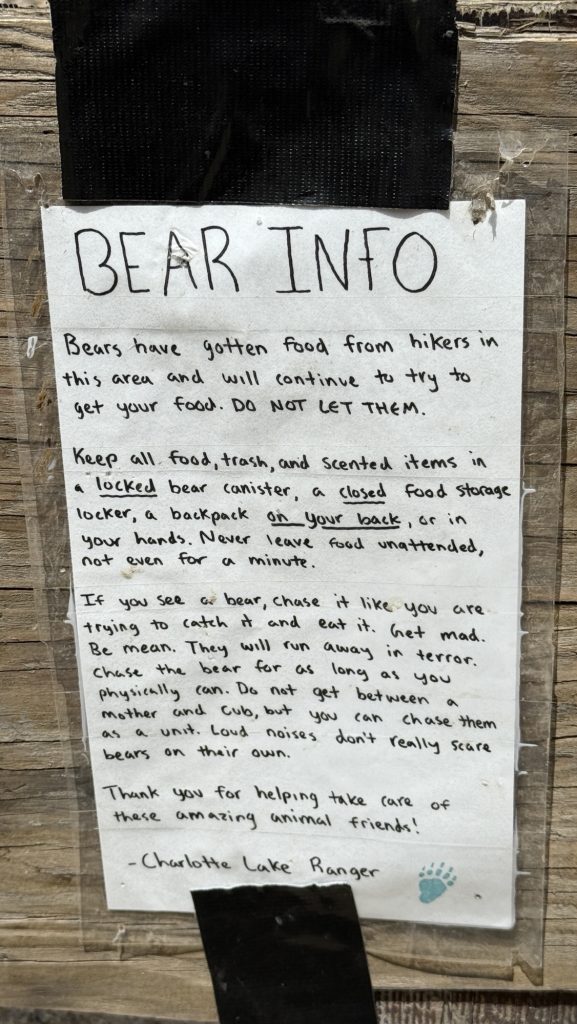 BEAR INFO
Bears have gotten food from hikers in
this area and will continue to try to
get your food. DO NOT LET THEM.
Keep all food, trash, and scented items in
a locked bear canister, a closed food storage
locker, a backpack on your back, or in
your hands. Never leave food unattended,
not even for a minute.
If you see a bear, chase it like you are
trying to catch it and eat it. Get mad.
Be mean. They will run away in terror.
Chase the bear for as long as you
physically can. Do not get between a
mother and cub, but you can chase them
as a unit. Loud noises don't really scare
bears on their own.
Thank you for helping take care of
these amazing animal friends!
- Charlotte Lake Ranger